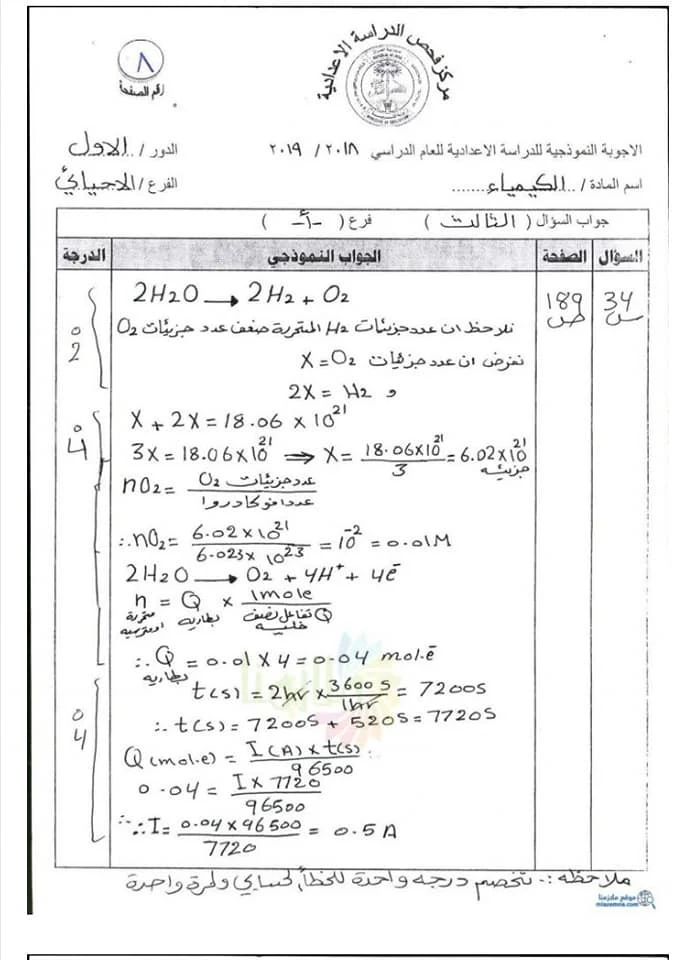 مركز فحص الدراسة الاعدادية
٨
رقم الصفحة
الاجوبة النموذجية للدراسة الاعدادية للعام الدراسي ٢٠١٨ / ٢٠١٩ الدور /..الاول
اسم المادة /..الكيمياء....... الفرع/الاحيائي
جواب السؤال ( الثالث ) فرع ( -أ- )
السؤال الصفحة الجواب النموذجي الدرجة
34 س
189 ص
2H2O → 2H2 + O2
نلاحظ ان عدد جزيئات H2 المتحررة ضعف عدد جزيئات O2
نفرض ان عدد جزيئات X = O2
و 2X = H2
02
X + 2X = 18.06 × 10^21
3X = 18.06 × 10^21 ⟹ X = 18.06×10^21 / 3 = 6.02×10^21 جزيئه
04
nO2 = عدد جزيئات O2 / عدد افوكادروا
∴ nO2 = 6.02 × 10^21 / 6.023 × 10^23 = 10^-2 = 0.01M
2H2O → O2 + 4H+ + 4ē
n = Q × 1mole / Q
متحررة او مترسبه بطاريه تفاعل نصف خليه
∴ Q = 0.01 × 4 = 0.04 mol.ē
بطاريه
t(s) = 2hr × 3600 S / 1hr = 7200S
∴ t(s) = 7200S + 520S = 7720S
04
Q(mol.e) = I(A) × t(s) / 96500
0.04 = I × 7720 / 96500
∴ I = 0.04 × 96500 / 7720 = 0.5 A
ملاحظه :- تخصم درجه واحدة للخطأ الحسابي ولمرة واحدة
موقع ملازمنا
mlazemna.com